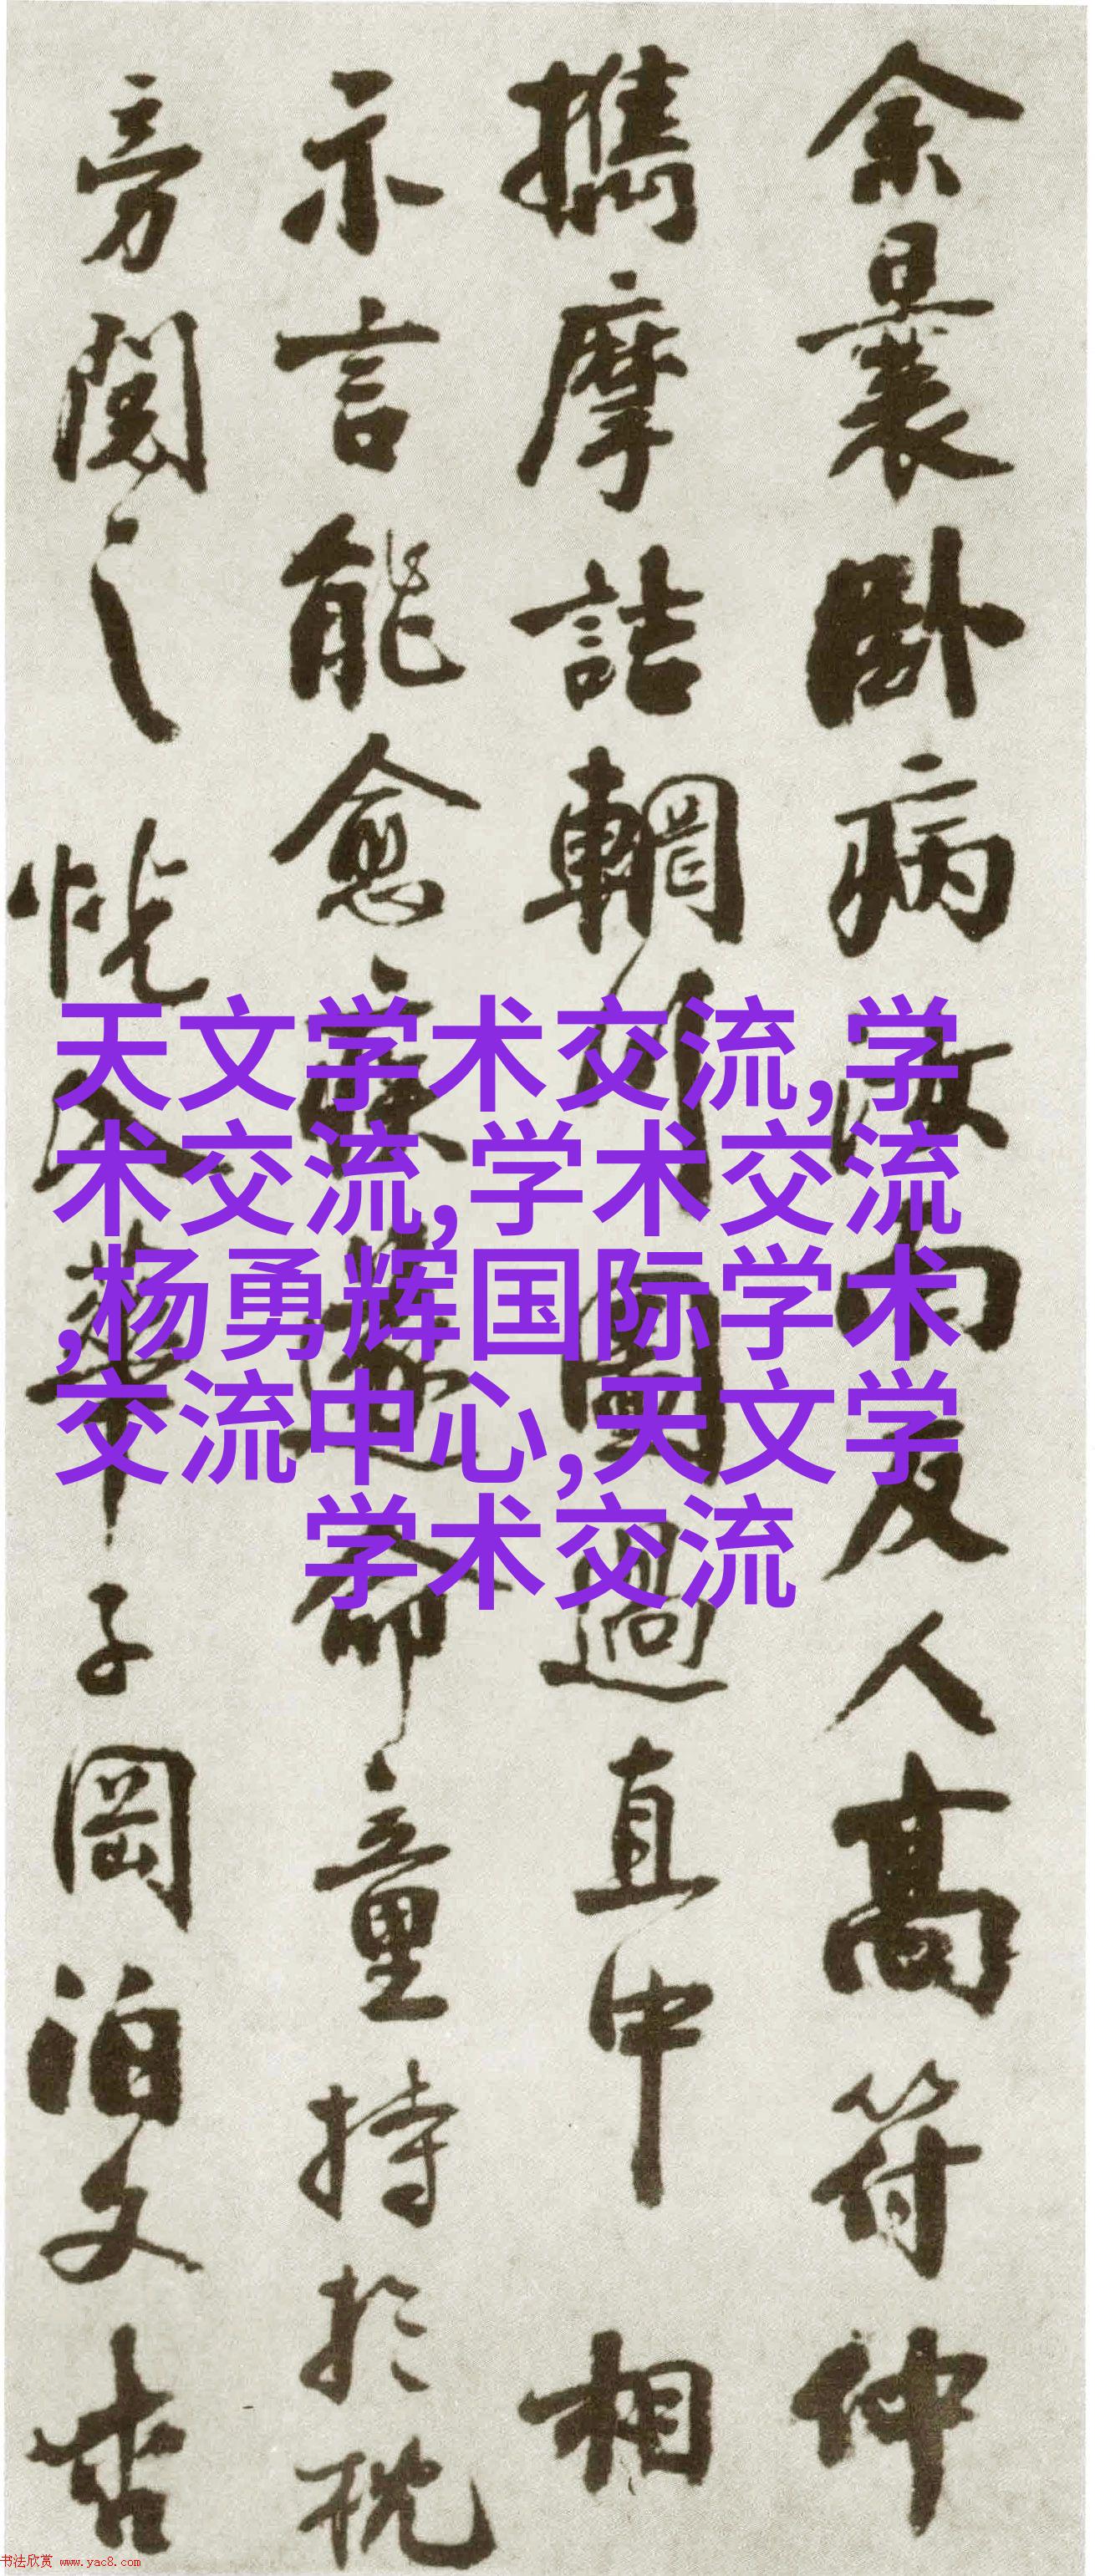 余曩卧病汝南友人高符仲
攜摩詰輞川圖過直中相
示言能愈疾遂命童持於枕
旁閱之恍入華子岡泊文杏
天文学术交流,学
术交流,学术交流
,杨勇辉国际学术
交流中心,天文学
学术交流
书法欣赏 www.yac8.com